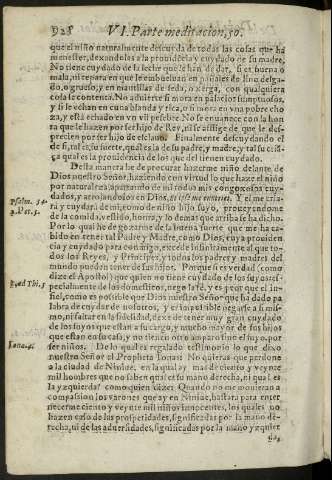 928 VI. Parte meditacion, 50.
que el niño naturalmente descuyda de todas las cosas que ha
menester, dexandolas a la prouidēcia y cuydado de su madre.
No tiene cuydado de la leche que le han de dar, si es buena o
mala, ni repara en que le embueluan en pañales de lino delga-
do, o grueso, y en mantillas de seda, o xerga, con qualquiera
cosa le contenta. No aduierte si mora en palacios sumptuosos,
y si le echan en cuna blanda y rica, o si mora en vna pobre cho
ça, y està echado en vn vil pesebre. No se enuanece con la hon
ra que le hazen por ser hijo de Rey, ni se aflige de que le des-
precien por ser hijo de esclauo. Finalmente descuydando el
de si, tal es, su suerte, qual es la de su padre, y madre, y tal su crīā
ça qual la prouidencia de los que del tienen cuydado.
Desta manera he de procurar hazerme niño delante de
Dios nuestro Señor, haziendo con virtud lo que haze el niño
por naturaleza, apartando de mi todos mis congoxosos cuy-
dados, y arrojandolos en Dios, et ipse me enutriet. Y el me cria-
rà y cuydarà de mi como de niño hijo suyo, proueyendome
de la comida, vestido, honra, y lo demas que arriba se ha dicho.
Por lo qual he de gozarme de la buena suerte que me ha ca-
bido en tener tal Padre y Madre, como Dios, cuya prouiden
cia y cuydado para conmigo, excede infinitamente al que to-
dos los Reyes, y Principes, y todos los padres y madres del
mundo pueden tener de sus hijos. Porque si es verdad (como
dize el Apostol) que quien no tiene cuydado de los suyos, es-
pecialmente de los domesticos, nego la fè, y es peor que el in-
fiel, como es posible que Dios nuestro Señor que ha dado pa
labra de cuydar de nosotros, y es imposible negarse a si mis-
mo, ni faltar en la fidelidad, dexe de tener muy gran cuydado
de los suyos que estan a su cargo, y mucho mayor de sus hijos
que estan en su casa, y no tienen otro amparo sino el suyo, por
ser niños. De lo qual es regalado testimonio lo que dixo
nuestro Señor el Propheta Ionas: No quieras que perdone
a la ciudad de Niniue, en la qual ay mas de ciento y veynte
mil hombres que no saben qual es su mano derecha, ni qual es
la yzquierda? como quien dize: Quando no me mouieran a
compasion los varones que ay en Niniue, bastara para enter
necerme ciento y veynte mil niños innocentes, los quales no
hazen caso de las prosperidades, significadas por la mano de-
recha, ni de las aduersidades, significadas por la mano yzquier
Psalm. 54
Iona. 4.